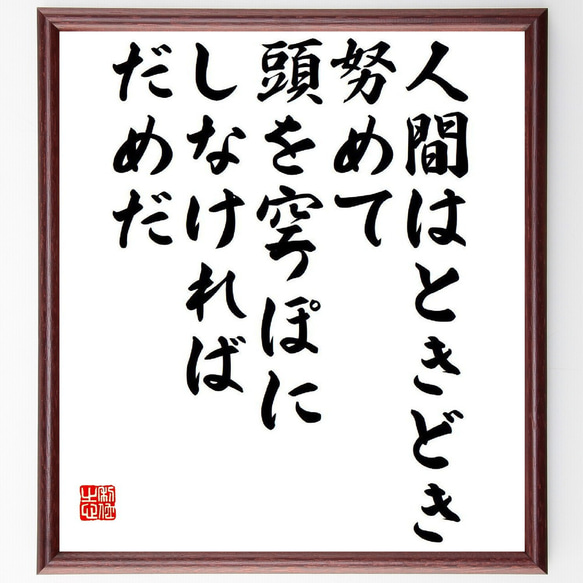 人間はときどき
努めて
頭を空っぽに
しなければ
だめだ